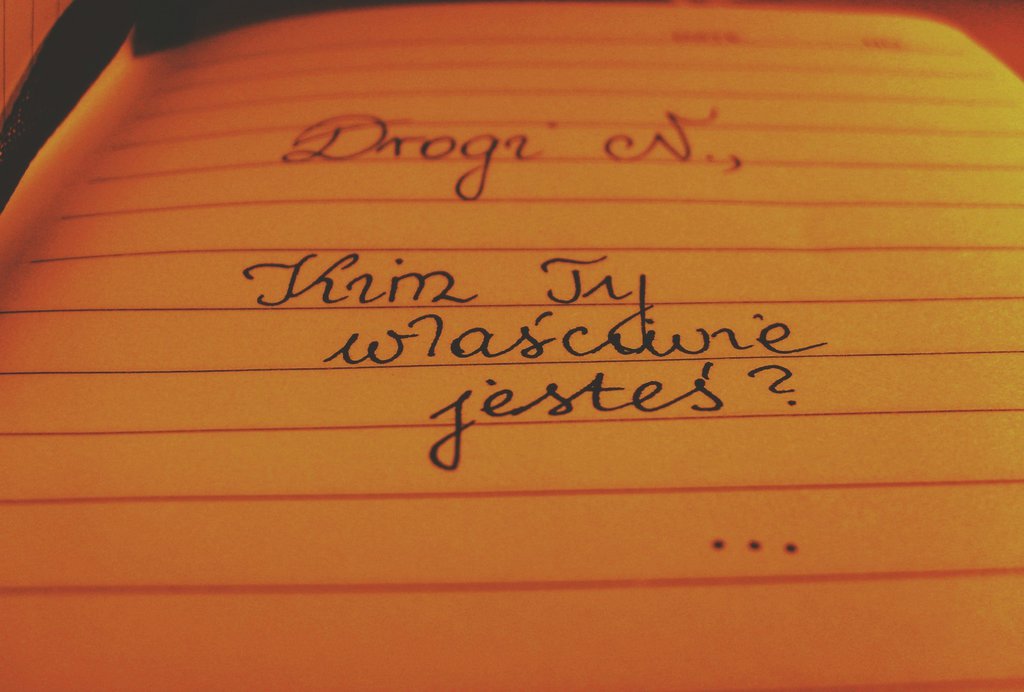 Drogi N.,
Kim Ty
właściwie
jesteś?
...